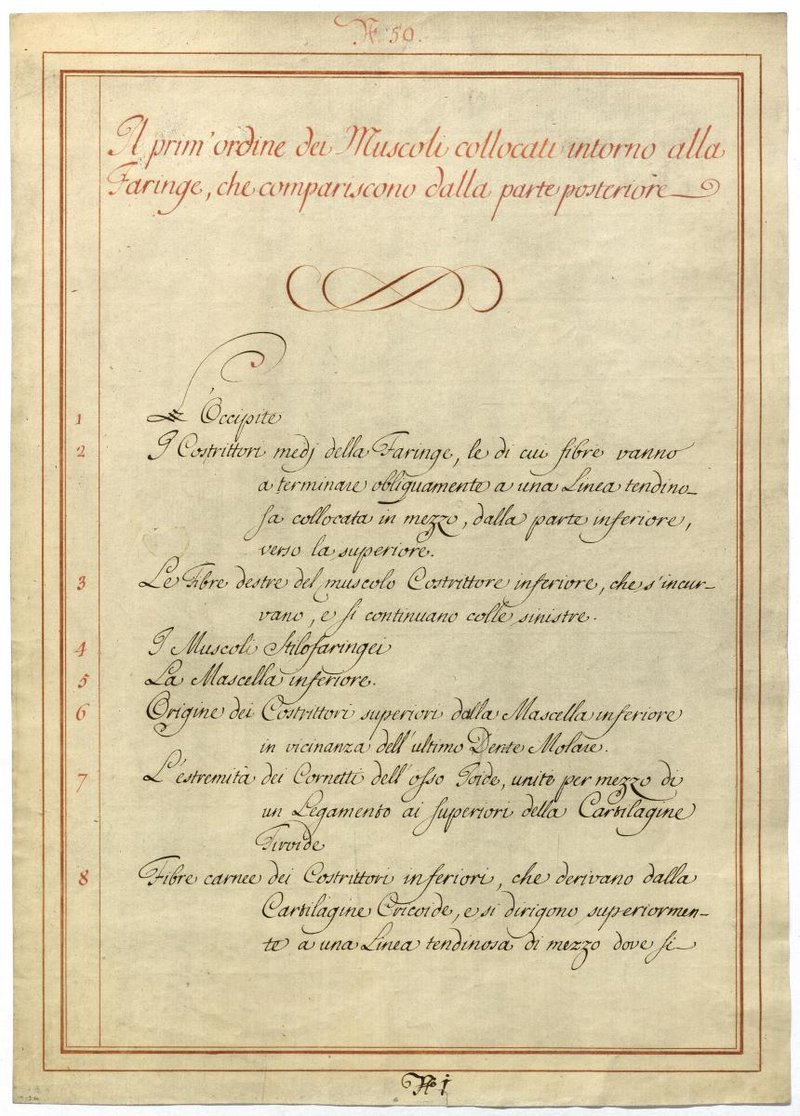 Nº 50.
Il prim'ordine dei Muscoli collocati intorno alla
Faringe, che compariscono dalla parte posteriore
1 L'Occipite
2 I Costrittori medj della Faringe, le di cui fibre vanno
a terminare obliquamente a una Linea tendino-
sa collocata in mezzo, dalla parte inferiore,
verso la superiore.
3 Le Fibre destre del muscolo Costrittore inferiore, che s'incur-
vano, e si continuano colle sinistre.
4 I Muscoli Stilofaringei
5 La Mascella inferiore.
6 Origine dei Costrittori superiori dalla Mascella inferiore
in vicinanza dell'ultimo Dente Molare.
7 L'estremità dei Cornetti dell'osso Joide, unite per mezzo di
un Legamento ai superiori della Cartilagine
Tiroide
8 Fibre carnee dei Costrittori inferiori, che derivano dalla
Cartilagine Cricoide, e si dirigono superiormen-
te a una Linea tendinosa di mezzo dove si
Nº 1